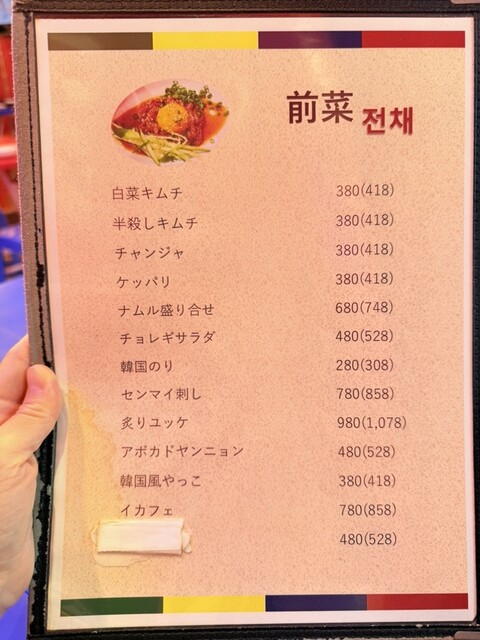 前菜 전채
白菜キムチ 380(418)
半殺しキムチ 380(418)
チャンジャ 380(418)
ケッパリ 380(418)
ナムル盛り合せ 680(748)
チョレギサラダ 480(528)
韓国のり 280(308)
センマイ刺し 780(858)
炙りユッケ 980(1,078)
アボカドヤンニョン 480(528)
韓国風やっこ 380(418)
イカフェ 780(858)
480(528)